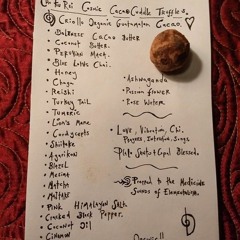 Cosmic Cacao Cuddle Truffles
Criollo Organic Guatemalan Cacao.
Balanzé Cacao Butter
Coconut Butter.
Peruvian Maca.
Blue Lotus Chai.
Honey
Chaga
Reishi
Turkey Tail
Tumeric
Lion's Mane
Cordyceps
Shiitake
Agarikon
Blazei
Mesima
Matcha
Maitake
Pink Himalayan Salt.
Cracked Black Pepper.
Coconut Oil
Cinamon
Ashwaganda
Passion flower
Rose Water
Love, Vibration, Chi.
Prayers, Intention, Songs.
Blessed.
to the
Sounds of